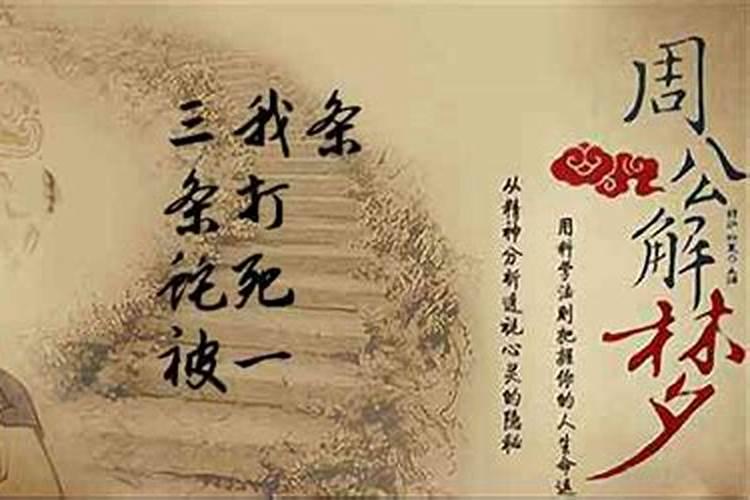 三条蛇被
我打死一
条
从精神分析透视心灵的隐秘
用科学法则把握你的人生命运
周公解梦